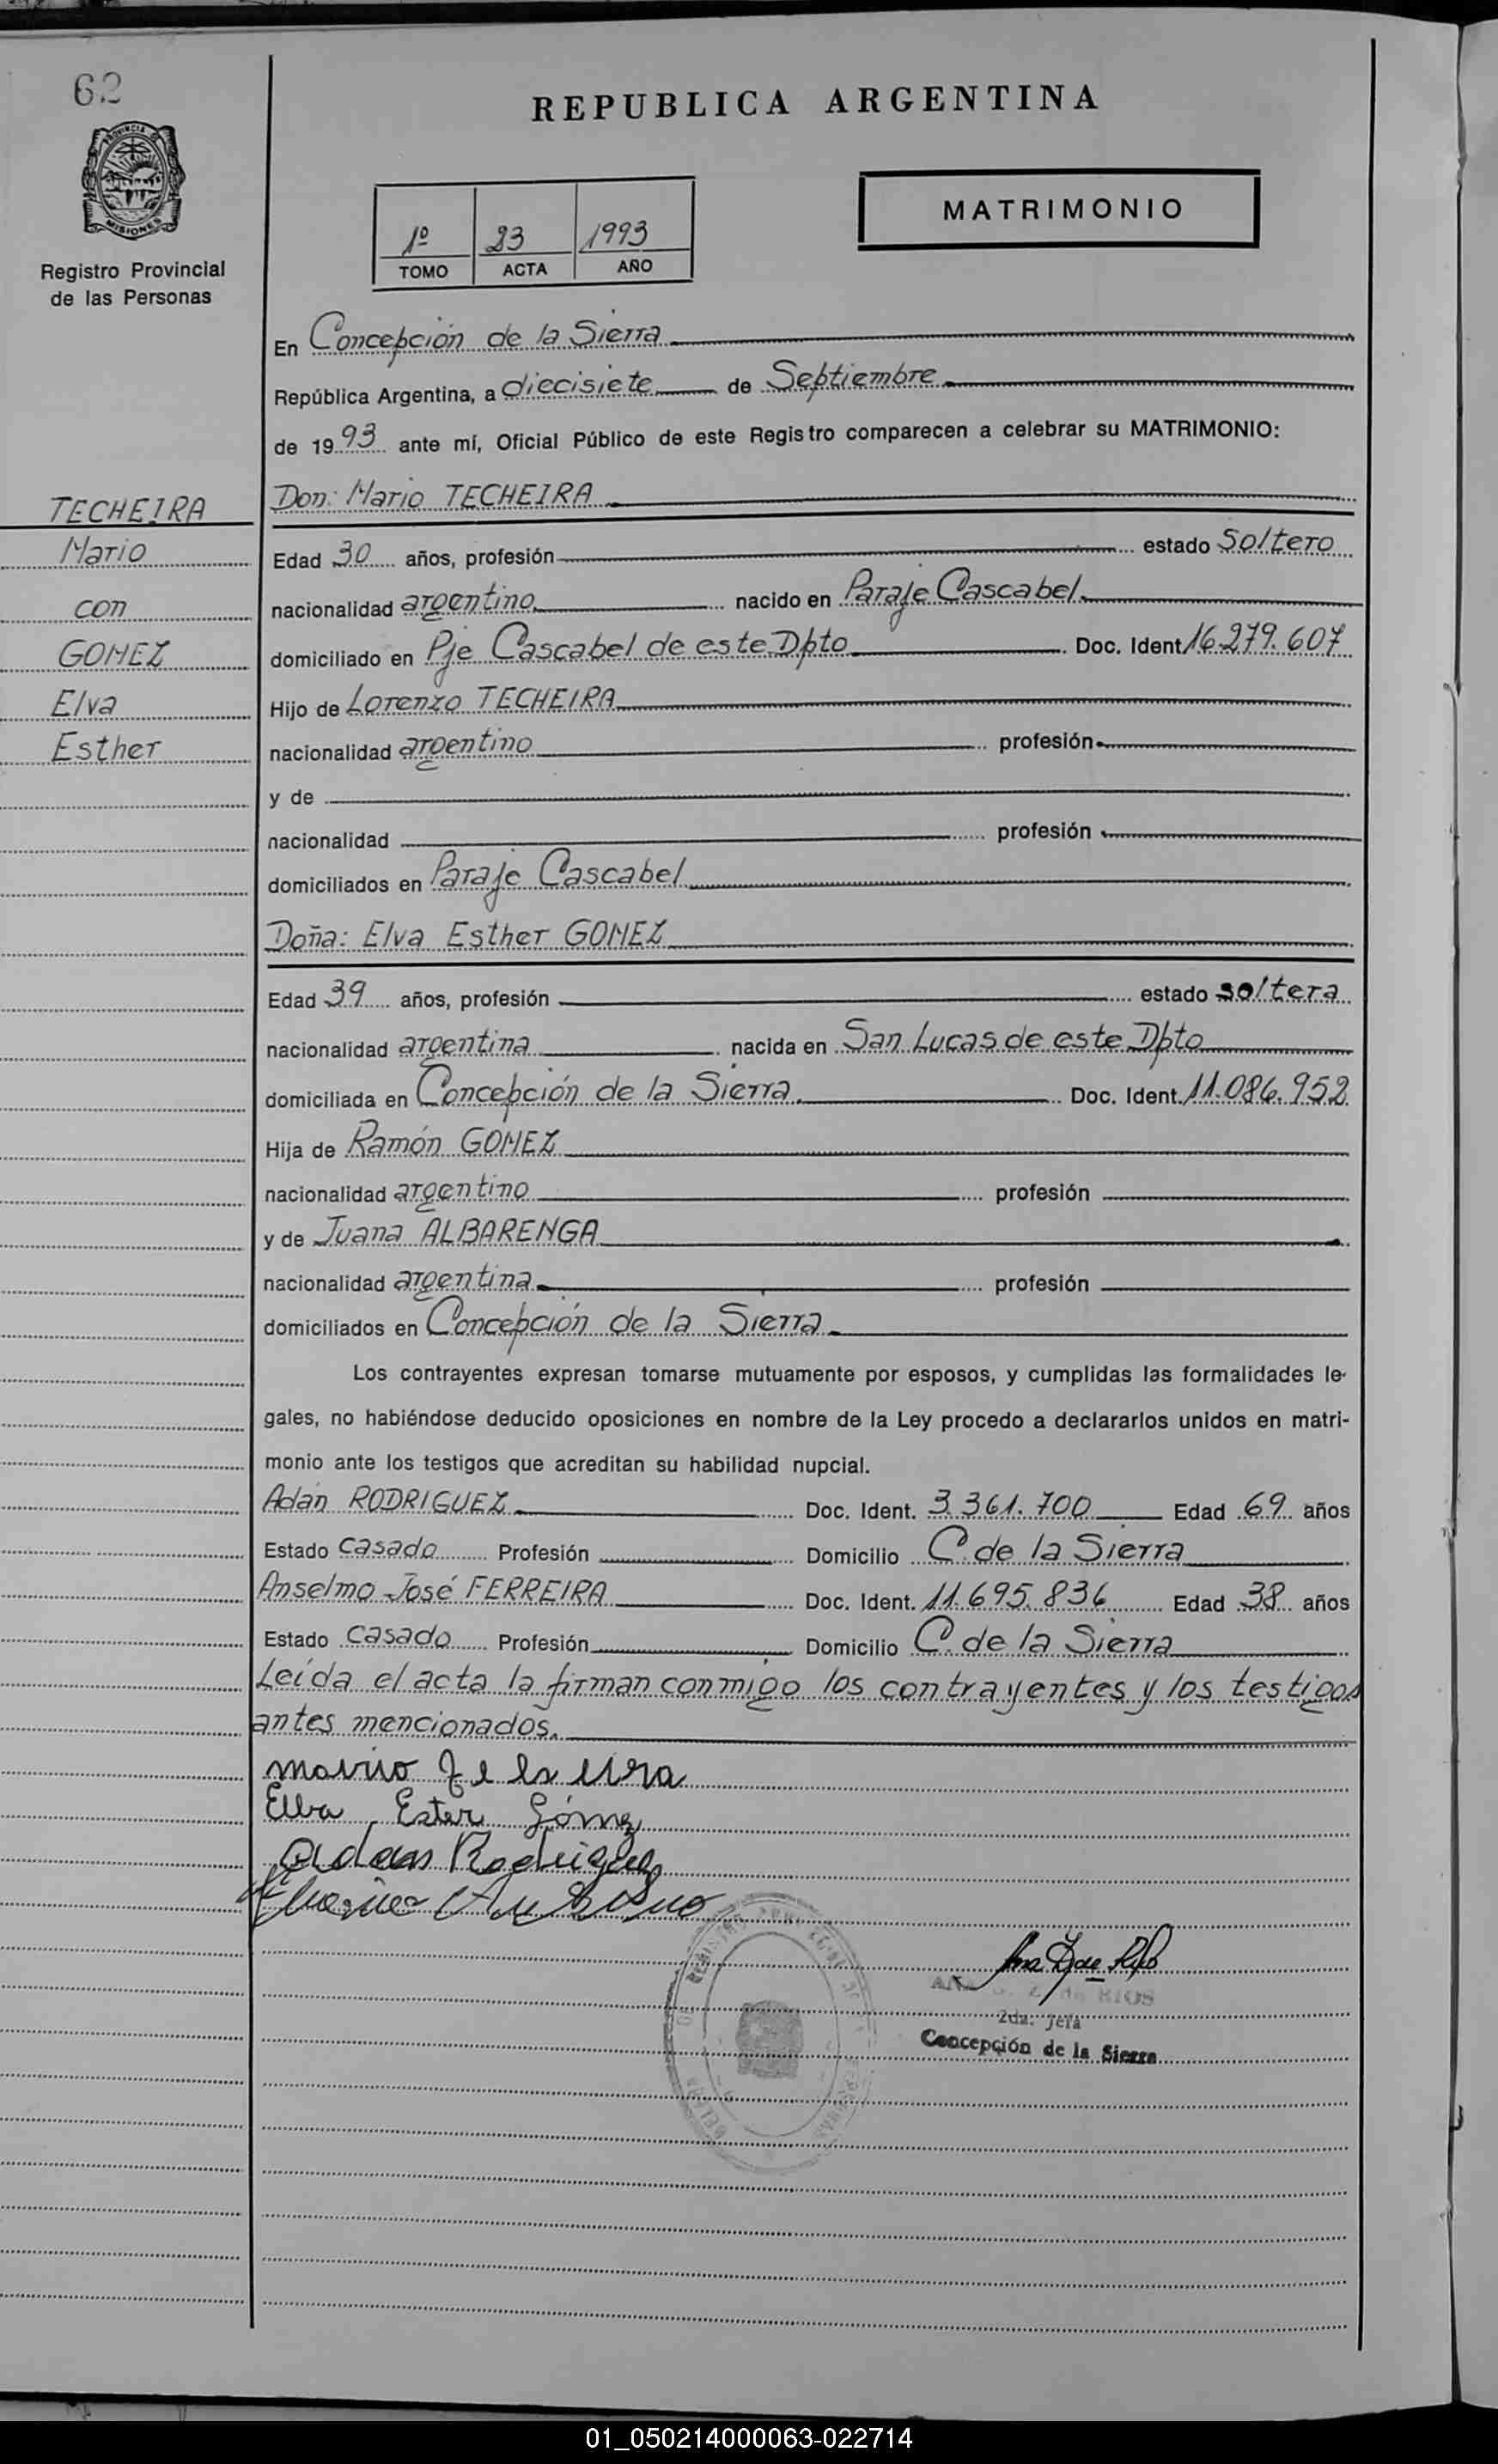 62
PROVINCIA DE
MISIONES
Registro Provincial
de las Personas
REPUBLICA ARGENTINA
1º 23 1993
TOMO ACTA AÑO
MATRIMONIO
En Concepción de la Sierra
República Argentina, a diecisiete de Septiembre
de 1993 ante mí, Oficial Público de este Registro comparecen a celebrar su MATRIMONIO:
TECHEIRA
Mario
con
GOMEZ
Elva
Esther
Don: Mario TECHEIRA
Edad 30 años, profesión estado Soltero
nacionalidad argentino nacido en Paraje Cascabel
domiciliado en Pje Cascabel de este Dpto Doc. Ident 16.279.607
Hijo de Lorenzo TECHEIRA
nacionalidad argentino profesión
y de
nacionalidad profesión
domiciliados en Paraje Cascabel
Doña: Elva Esther GOMEZ
Edad 39 años, profesión estado soltera
nacionalidad argentina nacida en San Lucas de este Dpto
domiciliada en Concepción de la Sierra Doc. Ident. 11.086.952
Hija de Ramón GOMEZ
nacionalidad argentino profesión
y de Juana ALBARENGA
nacionalidad argentina profesión
domiciliados en Concepción de la Sierra
Los contrayentes expresan tomarse mutuamente por esposos, y cumplidas las formalidades le-
gales, no habiéndose deducido oposiciones en nombre de la Ley procedo a declararlos unidos en matri-
monio ante los testigos que acreditan su habilidad nupcial.
Adán RODRIGUEZ Doc. Ident. 3.361.700 Edad 69 años
Estado casado Profesión Domicilio C. de la Sierra
Anselmo José FERREIRA Doc. Ident. 11.695.836 Edad 38 años
Estado casado Profesión Domicilio C. de la Sierra
Leída el acta la firman conmigo los contrayentes y los testigos
antes mencionados.
Elba Ester Gómez
Adan Rodriguez
de RIOS
2da. Jefa
Concepción de la Sierra
01_050214000063-022714